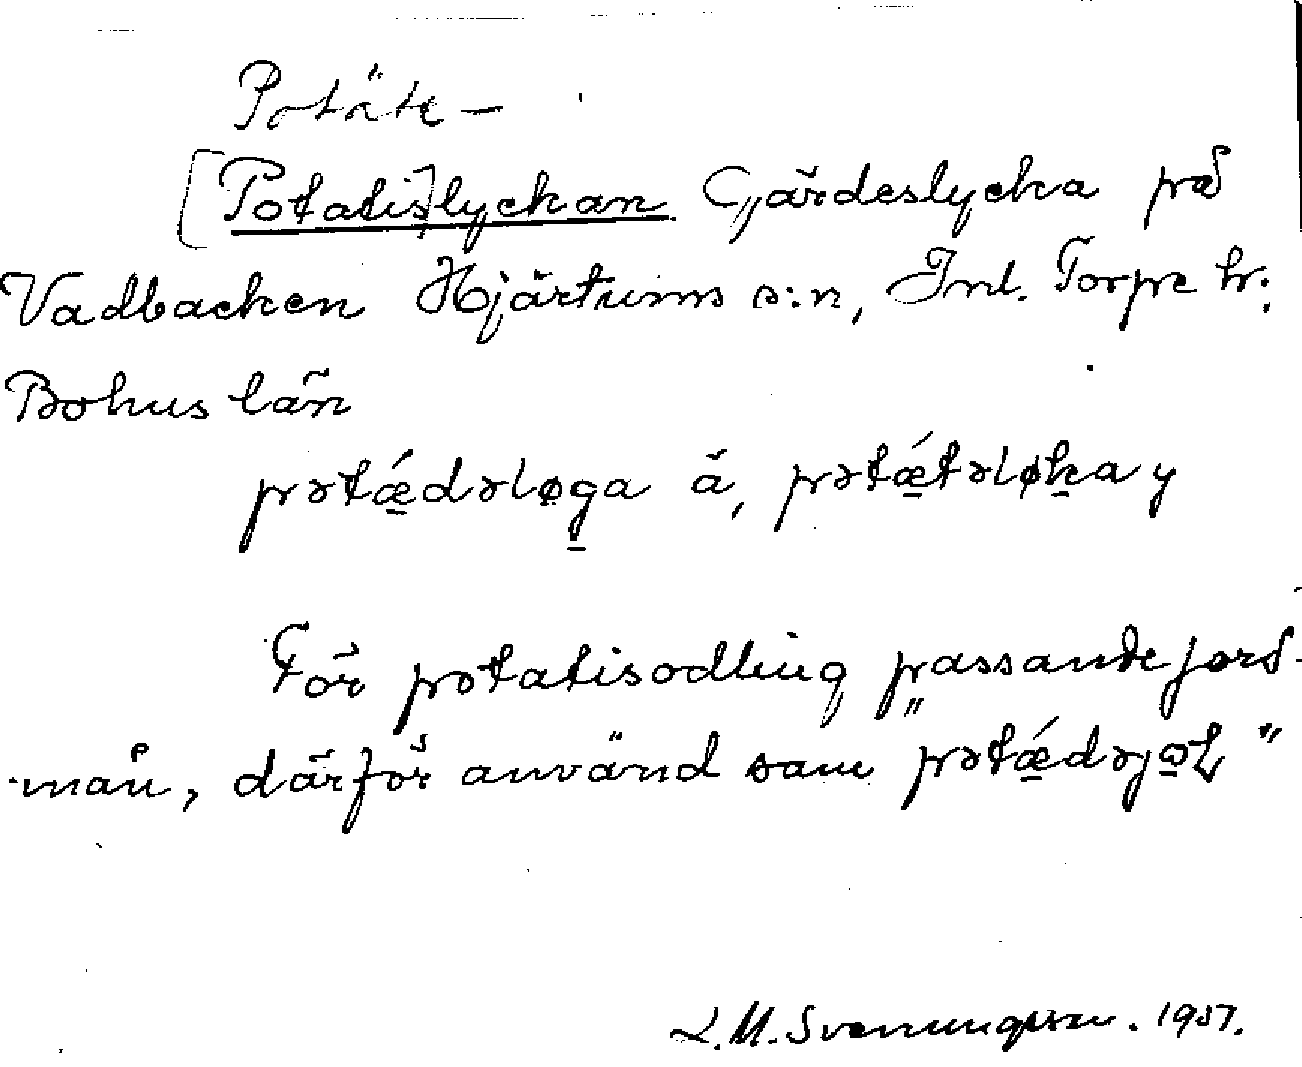 Potäte-
[Potatis]lyckan Gärdeslycka på
Vadbacken Hjärtums s:n, Inl. Torpe hr.,
Bohus län
pətǽdəløga ä, pətǽtəløka y
För potatisodling passande jord-
mån, därför använd som "pətǽdəjoḷ"
L.M. Svenungsson. 1957.